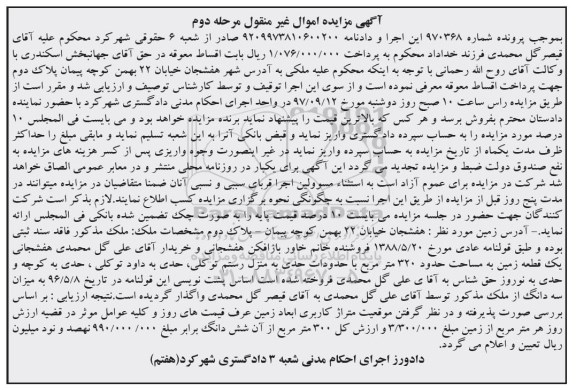 آگهی مزایده اموال غیر منقول مرحله دوم
بموجب پرونده شماره ۹۷۰۳۶۸ این اجرا و دادنامه ۹۲۰۹۹۷۳۸۱۰۶۰۰۲۰۰ صادر از شعبه ۶ حقوقی شهرکرد محکوم علیه آقای
قیصرگل محمدی فرزند خداداد محکوم به پرداخت ۱/۰۷۶/۰۰۰/۰۰۰ ریال بابت اقساط معوقه در حق آقای جهانبخش اسکندری با
وکالت آقای روح الله رحمانی با توجه به اینکه محکوم علیه ملکی به آدرس شهر هفشجان خیابان ۲۲ بهمن کوچه پیمان پلاک دوم
جهت پرداخت اقساط معوقه معرفی نموده است و از سوی این اجرا توقیف و توسط کارشناس توصیف و ارزیابی شد و مقرر است از
طریق مزایده راس ساعت ۱۰ صبح روز دوشنبه ۹۷/۰۹/۱۲ در واحد اجرای احکام مدنی دادگستری شهرکرد با حضور نماینده
دادستان محترم بفروش برسد و هر کس که بالاترین قیمت را پیشنهاد نماید برنده مزایده خواهد بود و می بایست فی المجلس ۱۰
درصد مورد مزایده را به حساب سپرده دادگستری واریز نماید و قبض بانکی آنرا به این شعبه تسلیم نماید و مابقی مبلغ را حداکثر
ظرف مدت یکماه از تاریخ مزایده به حساب سپرده واریز نماید در غیر اینصورت وجوه واریزی پس از کسر هزینه های مزایده به
نفع صندوق دولت ضبط و مزایده تجدید می گردد این آگهی برای یکبار در روزنامه محلی منتشر و در معابر عمومی الصاق خواهد
شد شرکت در مزایده برای عموم آزاد است به استثناء مسوولین اجرا قربای سببی و نسبی آنان ضمنا متقاضیان در مزایده میتوانند در
مدت پنج روز قبل از مزایده از طریق این اجرا نسبت به چگونگی نحوه برگزاری مزایده کسب اطلاع نمایند.لازم بذکر است شرکت
کنندگان جهت حضور در جلسه مزایده می بایست ۱۰ درصد مبلغ را بصورت چک تضمین شده بانکی فی المجلس ارائه
نماید.- آدرس زمین مورد نظر : هفشجان خیابان ۲۲ بهمن کوچه پیمان – پلاک دوم مشخصات ملک: ملک مذکور فاقد سند ثبتی
بوده و طبق قولنامه عادی مورخ ۱۳۸۸/۵/۲۰ فروشنده خانم خاور بازافکن هفشجانی و خریدار آقای علی گل محمدی هفشجانی
یک قطعه زمین به مساحت حدود ۳۲۰ متر مربع با حدودات حدی به منزل رستم توکلی، حدی به داود توکلی ، حدی به کوچه و
حدی به نوروز حق شناس به آقای علی گل محمدی فروخته شده است براساس پشت نویسی این قولنامه در تاریخ ۹۶/۵/۸ به میزان
سه دانگ از ملک مذکور توسط آقای علی گل محمدی به آقای قیصر گل محمدی واگذار گردیده است.نتیجه ارزیابی : بر اساس
بررسی صورت پذیرفته و در نظر گرفتن موقعیت متراژ کاربری ابعاد زمین عرف قیمت های روز و کلیه عوامل موثر در قضیه ارزش
روز هر متر مربع از زمین مبلغ ۳/۳۰۰/۰۰۰ و ارزش کل ۳۰۰ متر مربع از آن شش دانگ برابر مبلغ ۹۹۰/۰۰۰/۰۰۰ نهصد و نود میلیون
ریال تعیین و اعلام می گردد.
دادورز اجرای احکام مدنی شعبه ۳ دادگستری شهرکرد(هفتم)